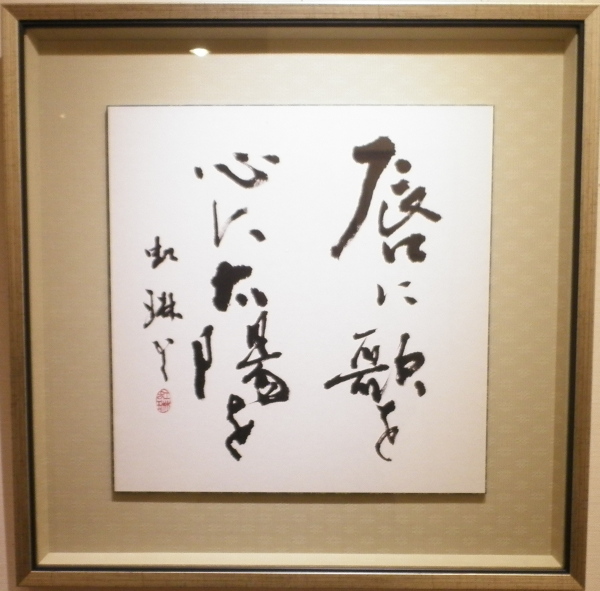 唇に歌を
心に太陽を
虹琳書